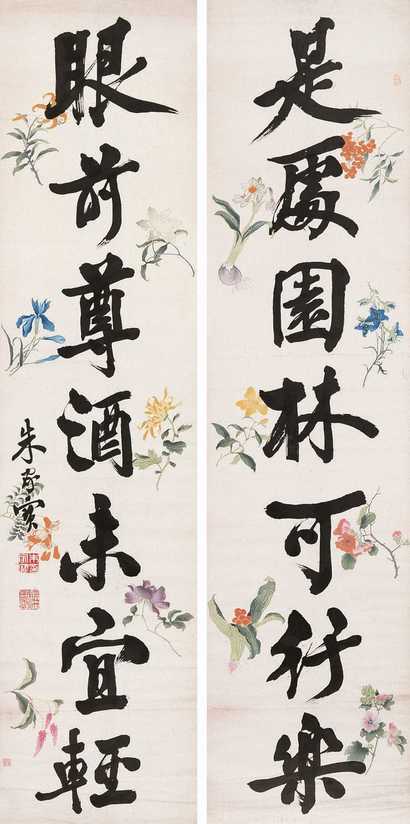 是處園林可行樂
眼前尊酒未宜輕
朱家寶